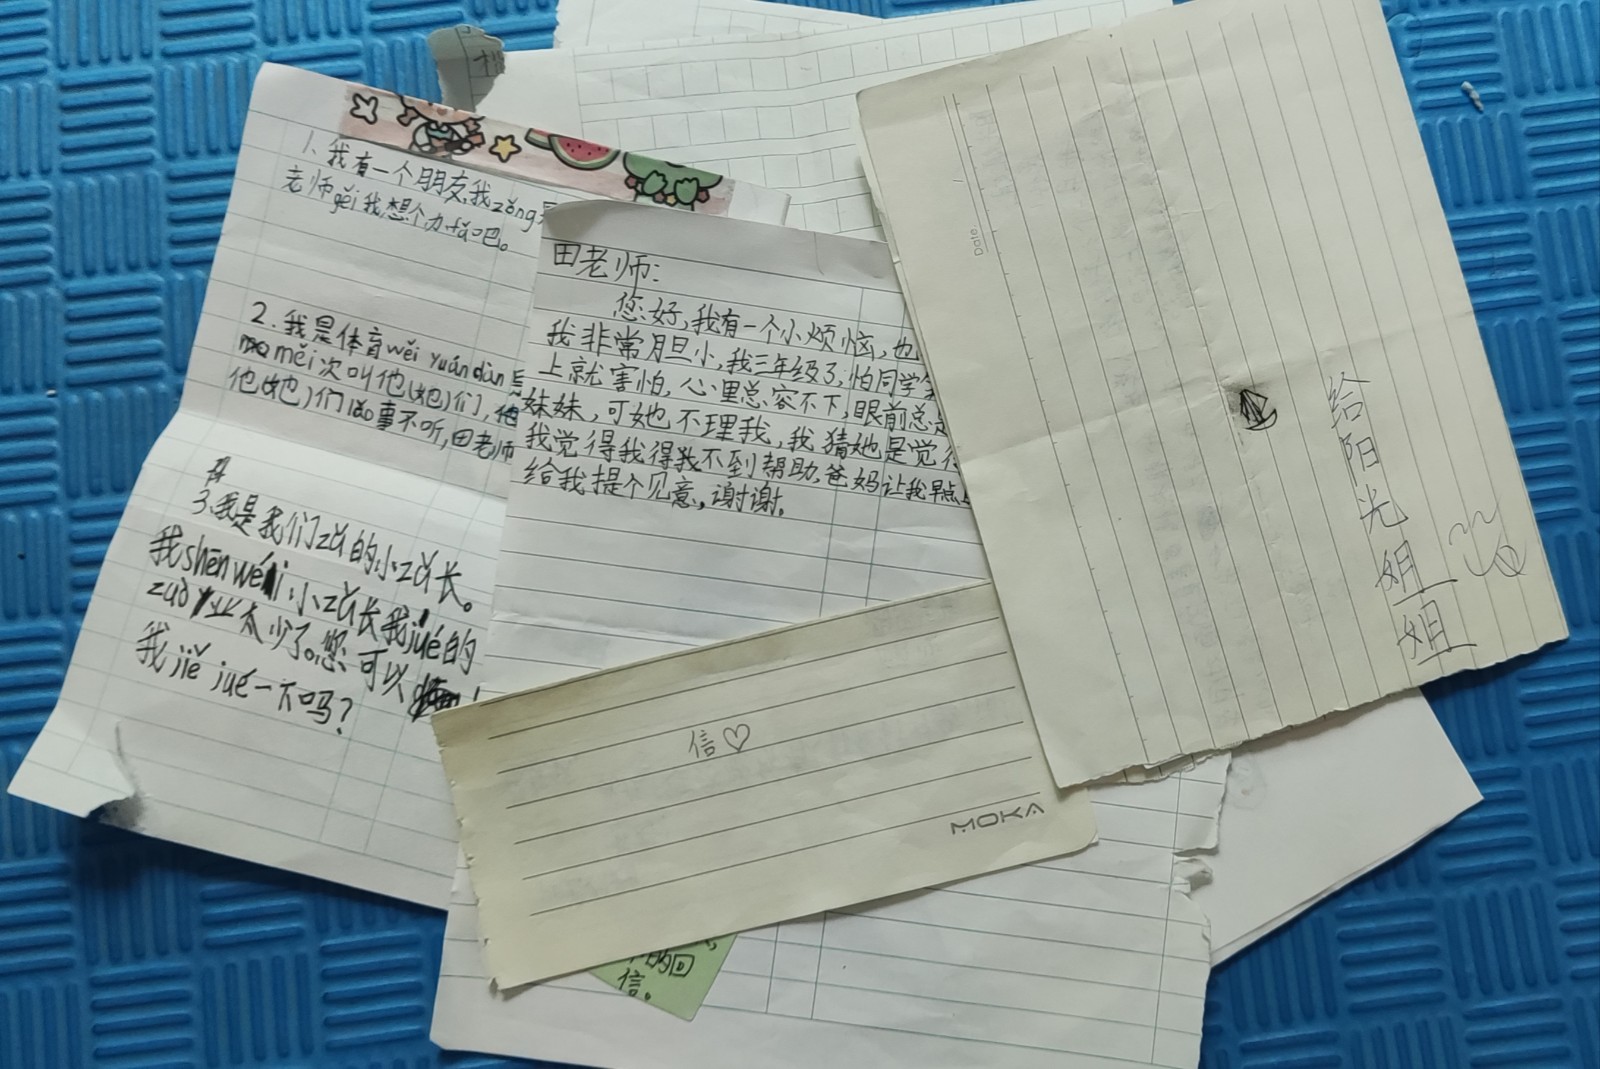 1、我有一个朋友,我zǒng
老师gěi我想个办fǎ吧。
2.我是体育wěi yuán dàn
měi次叫他(她)们,他
他(她)们都事不听,田老师
3.我是我们zǔ的小zǔ长。
我shēn wéi小zǔ长我jué的
zuò业太少了。您可以
我jiě jué一下吗?
田老师:
您好,我有一个小烦恼,也
我非常胆小,我三年级了,怕同学
上就害怕,心里总容不下,眼前总是
妹妹,可她不理我,我猜她是觉得
我觉得我得不到帮助,爸妈让我早点
给我提个见意,谢谢。
Date
给阳光姐姐
信♡
MOKA
的回
信。